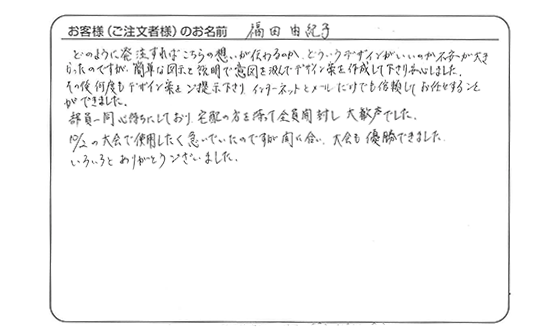 お客様(ご注文者様)のお名前 福田 由紀子
どのように発注すればこちらの想いが伝わるのか、どういうデザインがいいのか不安が大き
かったのですが、簡単な図示と説明で意図を汲んでデザイン案を作成して下さり安心しました。
その後何度もデザイン案をご提示下さり、インターネットとメールだけでも信頼してお任せすること
ができました。
部員一同心待ちにしており、宅配の方を待って全員開封し大歓声でした。
10/2の大会で使用したく急いでいたのですが間に合い、大会も優勝できました。
いろいろとありがとうございました。